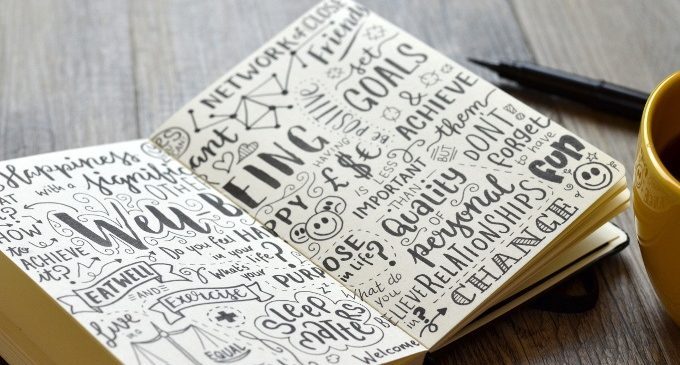 Happiness
with a significant
OTHER
HOW
to
ACHIEVE
it?
Well-B
Do you feel
in your
What's
your
EAT WELL
AND
Exercise
Live
as
EQUAL
SLEEP
MATTERS
NETWORK of CLOSE
Friends
POSITIVE
set
GOALS
&
ACHIEVE
them
BUT
DON'T
forget
to have
fun
EING
HAVING
£$€
IS LESS
IMPORTANT
THAN
Quality
of personal
RELATIONSHIPS
PPY
POSE
in life?
PURP
What do
you
BELIEVE
in?
CHANGE
Welcome